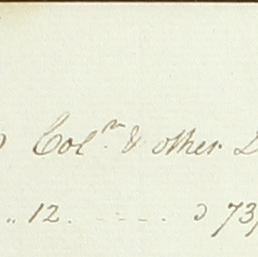 Col.n & other
„ 12. - - - - . 73